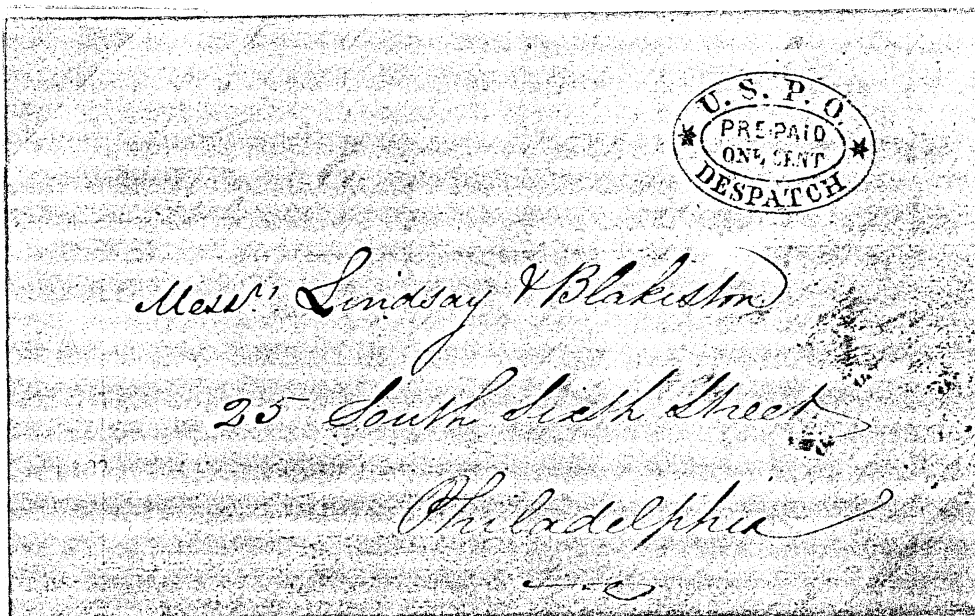 U. S. P. O.
PRE-PAID
ONE CENT
DESPATCH
Messrs Lindsay & Blakiston
25 South Sixth Street
Philadelphia